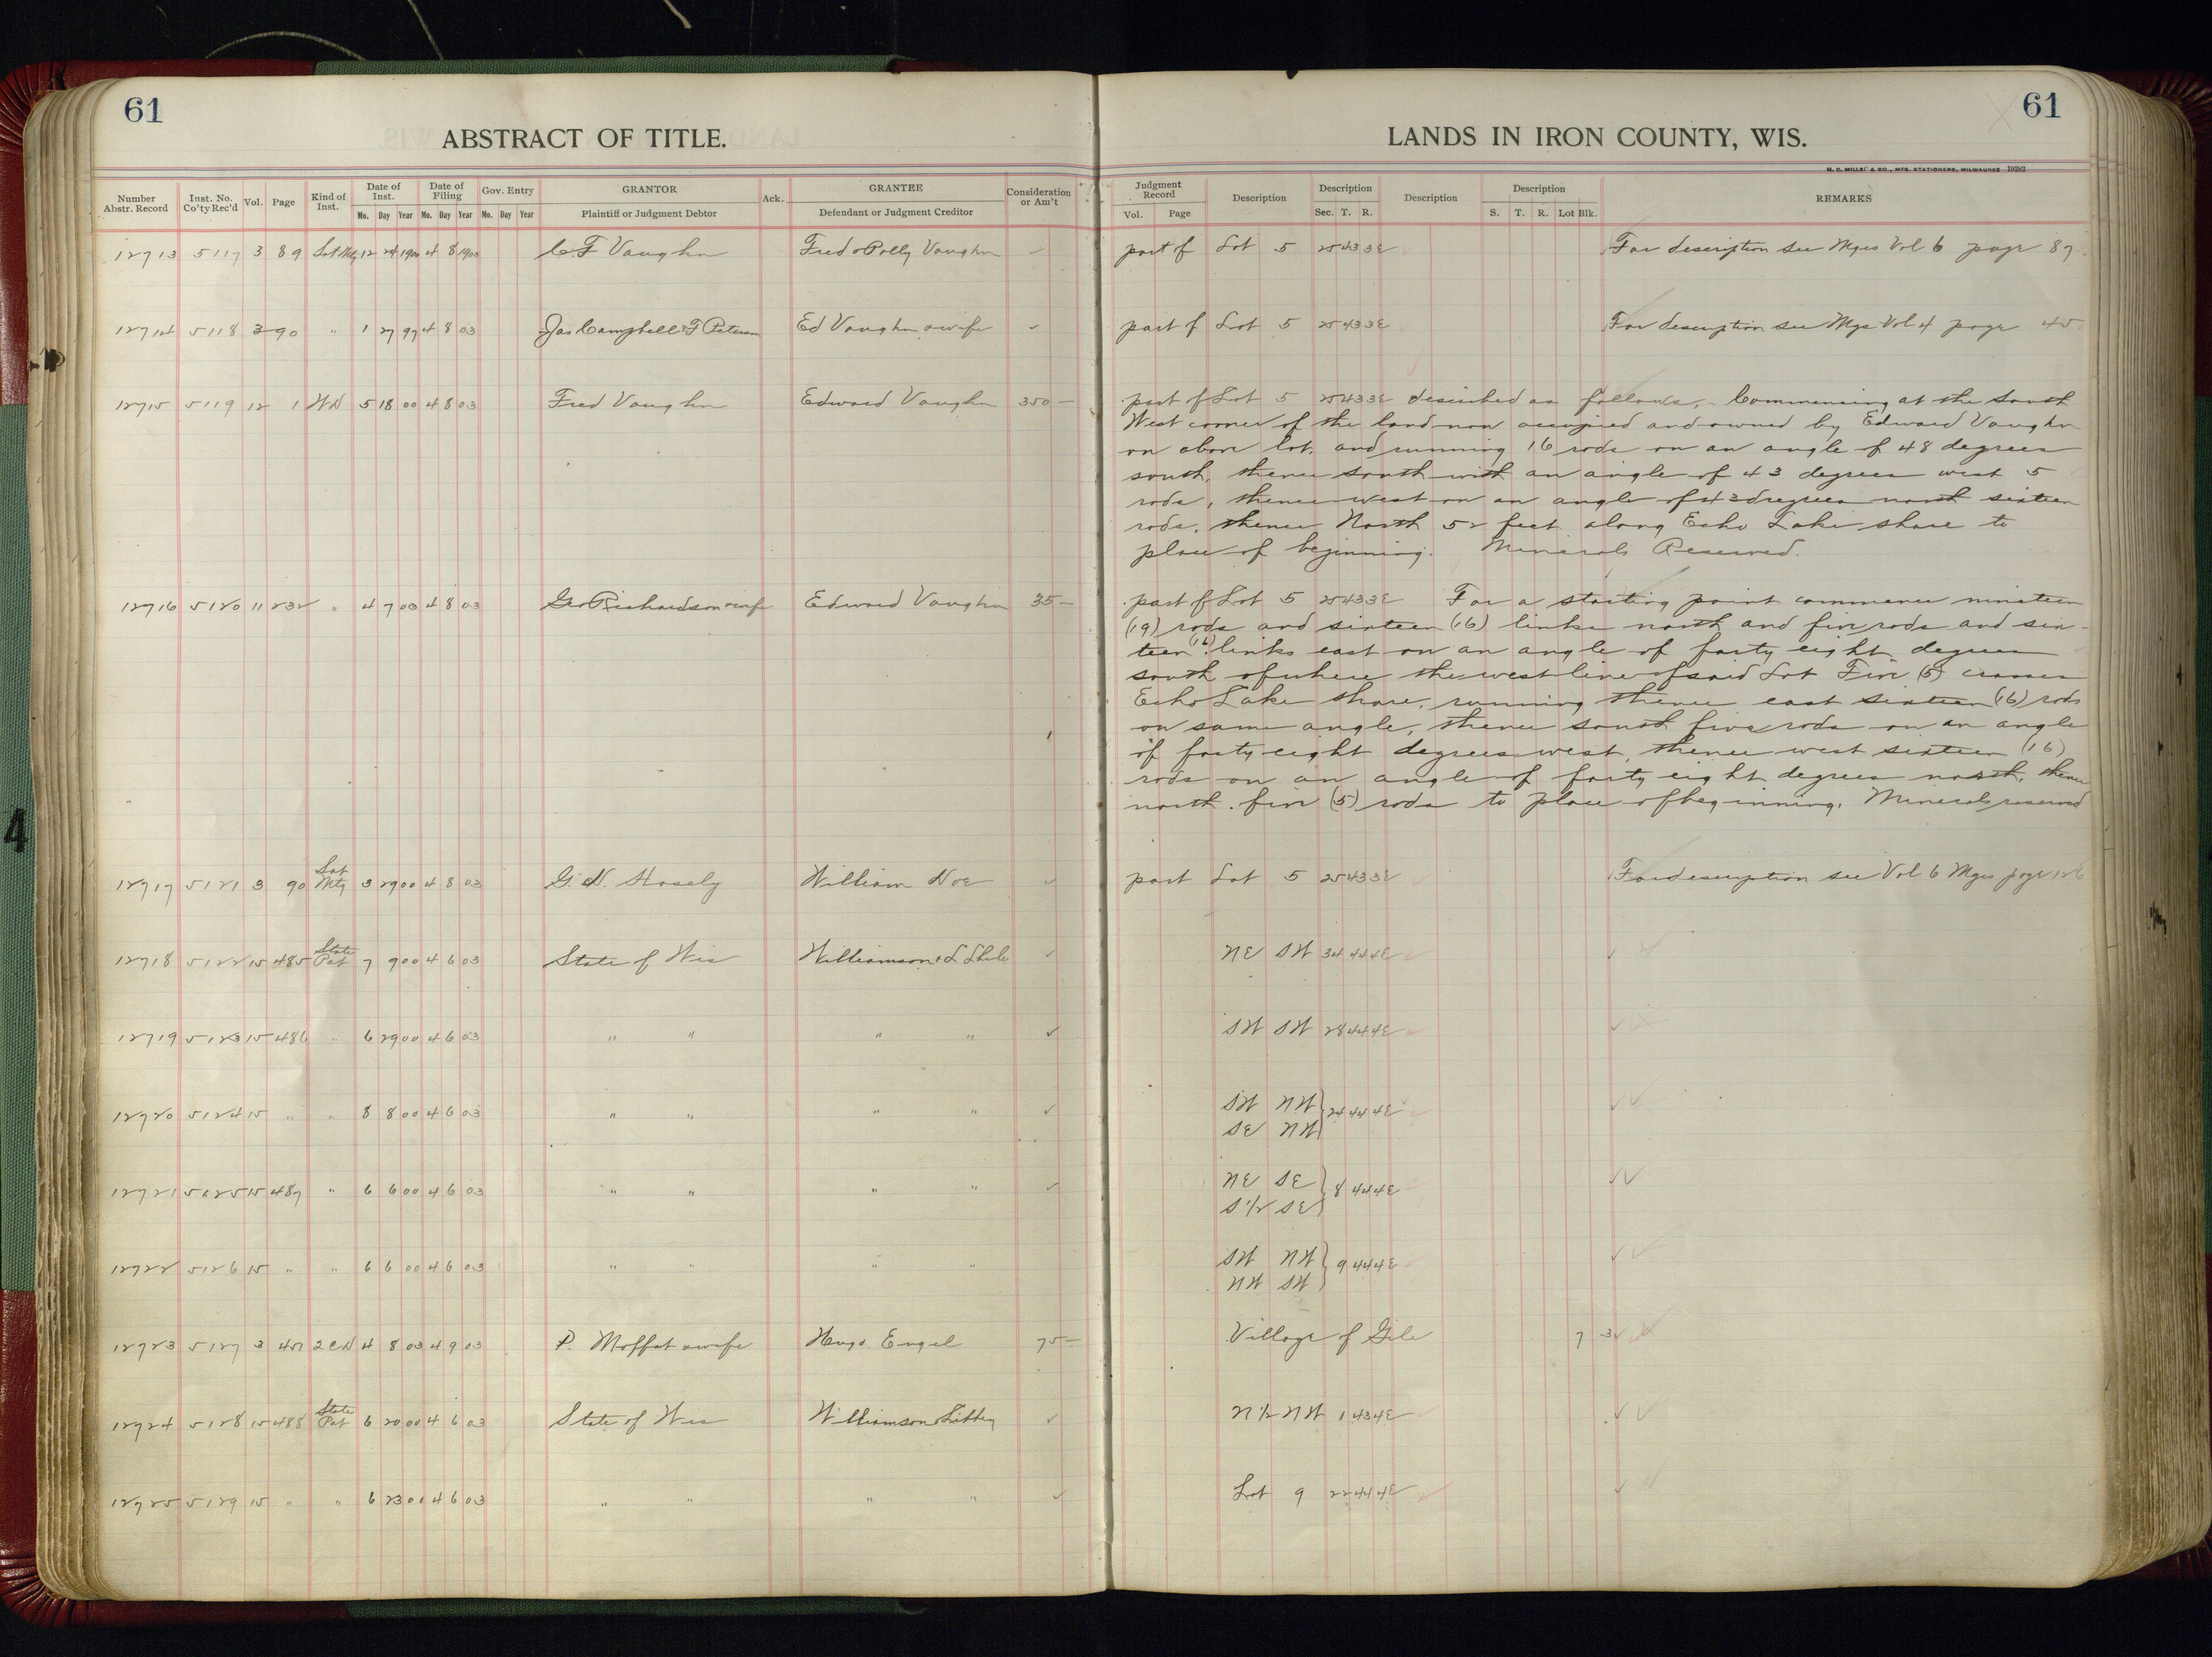 61
61
ABSTRACT OF TITLE.
LANDS IN IRON COUNTY, WIS.
M. C. MILLER & CO., MFG. STATIONERS, MILWAUKEE 19282
Number Abstr. Record Inst. No. Co'ty Rec'd Vol. Page Kind of Inst. Date of Inst. Mo. Day Year Date of Filing Mo. Day Year Gov. Entry Mo. Day Year GRANTOR Plaintiff or Judgment Debtor Ack. GRANTEE Defendant or Judgment Creditor Consideration or Am't
Judgment Record Vol. Page Description Description Sec. T. R. Description Description S. T. R. Lot Blk. REMARKS
12713 5117 3 89 Sat Mtg 12 24 1900 4 8 1903 C. F Vaughn Fred & Polly Vaughn ✓ part of Lot 5 25 43 3E For description see Mges Vol 6 page 87
12714 5118 3 90 " 1 27 97 4 8 03 Jas Campbell & F Peterson Ed Vaughn & wife ✓ part of Lot 5 25 43 3E For description see Mge Vol 4 page 45
12715 5119 12 1 WD 5 18 00 4 8 03 Fred Vaughn Edward Vaughn 350 – part of Lot 5 25 43 3E described as follows, Commencing at the South
West corner of the land now occupied and owned by Edward Vaughn
on above lot, and running 16 rods on an angle of 48 degrees
south, thence south with an angle of 43 degrees west 5
rods, thence west on an angle of 43 degrees north sixteen
rods, thence North 52 feet along Echo Lake shore to
place of beginning. Minerals Reserved.
12716 5120 11 232 " 4 7 03 4 8 03 Geo Richardson & wife Edward Vaughn 35 – part of Lot 5 25 43 3E For a starting point commence nineteen
(19) rods and sixteen (16) links north and five rods and six-
teen (16) links east on an angle of forty eight degrees
south of where the west line of said Lot Five (5) crosses
Echo Lake shore, running thence east sixteen (16) rods
on same angle, thence south five rods on an angle
of forty eight degrees west, thence west sixteen (16)
rods on an angle of forty eight degrees north, thence
north five (5) rods to place of beginning. Minerals reserved
12717 5121 3 90 Sat Mtg 3 29 00 4 8 03 G. N. William Noe ✓ part Lot 5 25 43 3E For description see Vol 6 Mges page 126
12718 5122 15 485 State Pat 7 9 00 4 6 03 State of Wis Williamson & L ✓ NE SW 34 44 4E
12719 5123 15 486 " 6 29 00 4 6 03 " " " " ✓ SW SW 28 44 4E
12720 5124 15 " " 8 8 00 4 6 03 " " " " ✓ SW NW } 24 44 4E
SE NW
12721 5125 15 487 " 6 6 00 4 6 03 " " " " ✓ NE SE } 8 44 4E
S 1/2 SE
12722 5126 15 " " 6 6 00 4 6 03 " " " " SW NW } 9 44 4E
NW SW
12723 5127 3 451 2CD 4 8 03 4 9 03 P. Moffat & wife Hugo Engel 75 – Village of Gile 7 3
12724 5128 15 488 State Pat 6 20 00 4 6 03 State of Wis Williamson & Libbey ✓ N 1/2 NW 1 43 4E
12725 5129 15 " " 6 23 00 4 6 03 " " " " ✓ Lot 9 22 44 4E
4